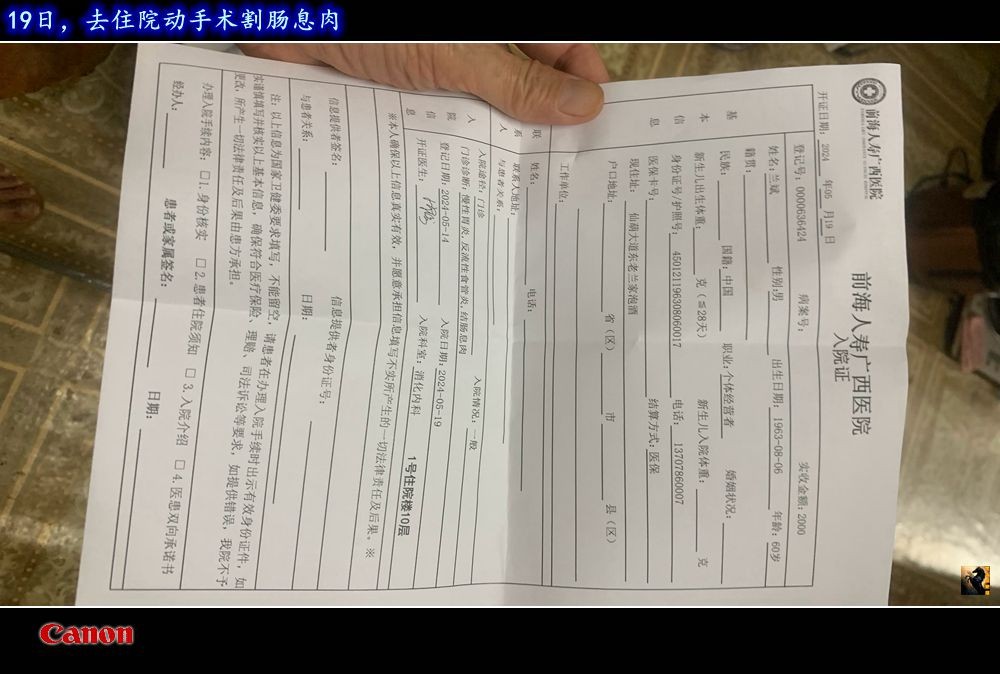 19日，去住院动手术割肠息肉
前海人寿广西医院
前海人寿广西医院
入院证
开证日期：2024年05月19日
登记号：0000636424 病案号： 实收金额：2000
姓名：兰斌 性别：男 出生日期：1963-08-06 年龄：60岁
籍贯：
民族： 国籍：中国 职业：个体经营者 婚姻状况：
新生儿出生体重： 克（≤28天） 新生儿入院体重： 克
身份证号/护照号：450121196308060017 电话：13707860007
医保卡号： 结算方式：医保
现住址：仙葫大道东老兰家泡酒
户口地址： 省（区） 市 县（区）
工作单位：
基本信息
联系人
姓名： 电话：
联系人地址：
与患者关系：
入院信息
入院途径：门诊 入院情况：一般
门诊诊断：慢性胃炎,反流性食管炎,结肠息肉
登记日期：2024-05-14 入院日期：2024-05-19
开证医生： 入院科室：消化内科 1号住院楼10层
※本人确保以上信息真实有效，并愿意承担信息填写不实所产生的一切法律责任及后果。※
信息提供者签名： 信息提供者身份证号：
与患者关系： 日期：
注：以上信息为国家卫健委要求填写，不能留空，请患者在办理入院手续时出示有效身份证件，如
实谨慎填写并核实以上基本信息，确保符合医疗保险、理赔、司法诉讼等要求，如提供错误，我院不予
更改，所产生一切法律责任及后果由患方承担。
办理入院手续内容：□1.身份核实 □2.患者住院须知 □3.入院介绍 □4.医患双向承诺书
经办人： 患者或家属签名： 日期：
Canon